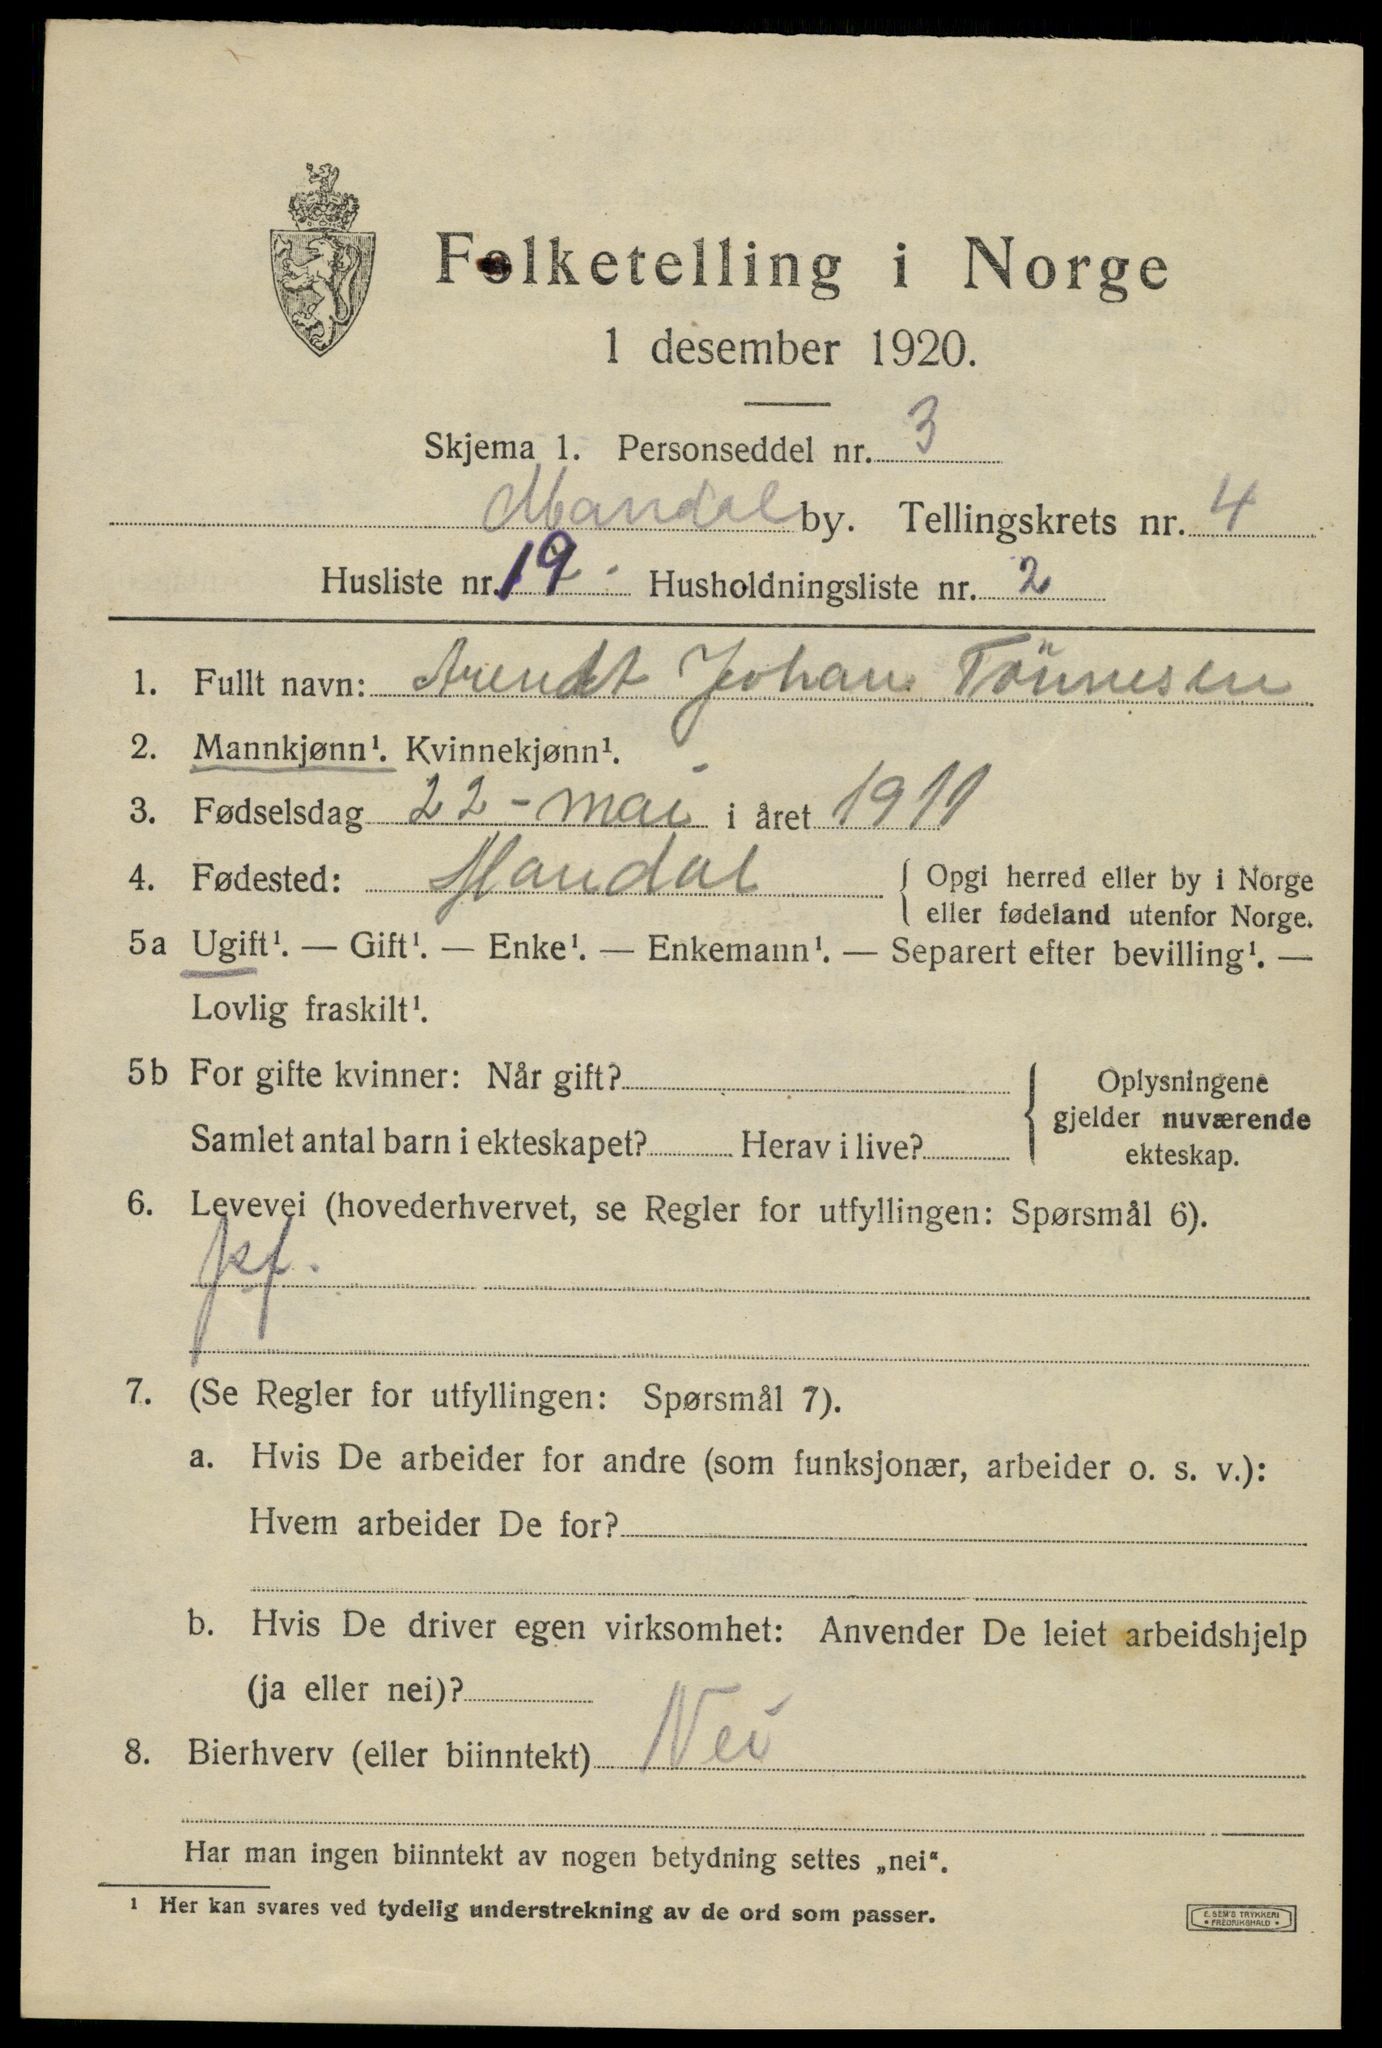 Folketelling i Norge
1 desember 1920.
Skjema 1. Personseddel nr. 3
Mandal by. Tellingskrets nr. 4
Husliste nr. 19. Husholdningsliste nr. 2
1. Fullt navn: Arendt Johan Tönnesen
2. Mannkjønn¹. Kvinnekjønn¹.
3. Fødselsdag 22 - mai i året 1911
4. Fødested: Mandal { Opgi herred eller by i Norge
eller fødeland utenfor Norge.
5a Ugift¹. — Gift¹. — Enke¹. — Enkemann¹. — Separert efter bevilling¹. —
Lovlig fraskilt¹.
5b For gifte kvinner: Når gift? { Oplysningene
gjelder nuværende
Samlet antal barn i ekteskapet? Herav i live?
ekteskap.
6. Levevei (hovederhvervet, se Regler for utfyllingen: Spørsmål 6).
7. (Se Regler for utfyllingen: Spørsmål 7).
a. Hvis De arbeider for andre (som funksjonær, arbeider o. s. v.):
Hvem arbeider De for?
b. Hvis De driver egen virksomhet: Anvender De leiet arbeidshjelp
(ja eller nei)?
8. Bierhverv (eller biinntekt) Nei
Har man ingen biinntekt av nogen betydning settes „nei“.
¹ Her kan svares ved tydelig understrekning av de ord som passer.
E. SEM'S TRYKKERI
• FREDRIKSHALD •